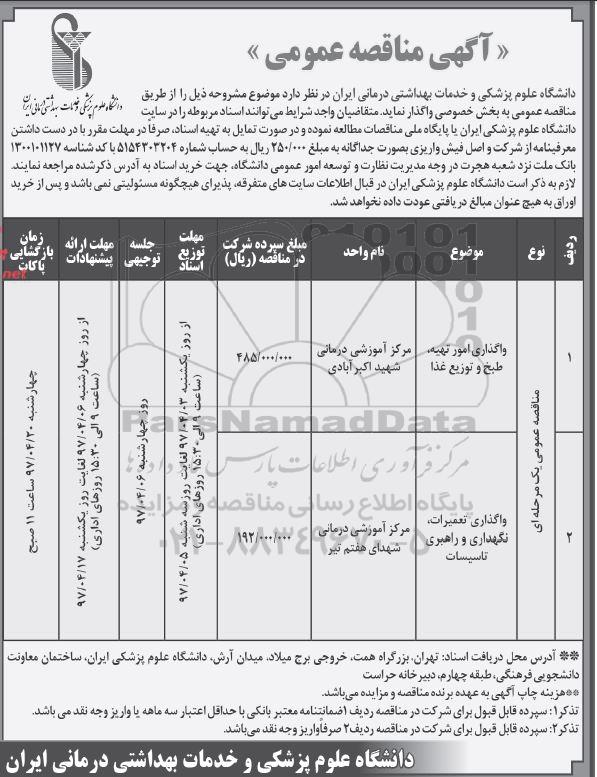 « آگهی مناقصه عمومی »
دانشگاه علوم پزشکی و خدمات بهداشتی درمانی ایران
دانشگاه علوم پزشکی و خدمات بهداشتی درمانی ایران در نظر دارد موضوع مشروحه ذیل را از طریق
مناقصه عمومی به بخش خصوصی واگذار نماید. متقاضیان واجد شرایط می‌توانند اسناد مربوطه را در سایت
دانشگاه علوم پزشکی ایران یا پایگاه ملی مناقصات مطالعه نموده و در صورت تمایل به تهیه اسناد، صرفاً در مهلت مقرر با در دست داشتن
معرفینامه از شرکت و اصل فیش واریزی بصورت جداگانه به مبلغ ۲۵۰/۰۰۰ ریال به حساب شماره ۵۱۵۴۳۰۳۲۰۴ با کد شناسه ۱۳۰۰۱۰۱۱۲۷
بانک ملت نزد شعبه هجرت در وجه مدیریت نظارت و توسعه امور عمومی دانشگاه، جهت خرید اسناد به آدرس ذکرشده مراجعه نمایند.
لازم به ذکر است دانشگاه علوم پزشکی ایران در قبال اطلاعات سایت های متفرقه، پذیرای هیچگونه مسئولیتی نمی باشد و پس از خرید
اوراق به هیچ عنوان مبالغ دریافتی عودت داده نخواهد شد.
ردیف
نوع
موضوع
نام واحد
مبلغ سپرده شرکت
در مناقصه (ریال)
مهلت
توزیع
اسناد
جلسه
توجیهی
مهلت ارائه
پیشنهادات
زمان
بازگشایی
پاکات
۱
مناقصه عمومی یک مرحله ای
واگذاری امور تهیه،
طبخ و توزیع غذا
مرکز آموزشی درمانی
شهید اکبرآبادی
۴۸۵/۰۰۰/۰۰۰
از روز یکشنبه ۹۷/۰۴/۰۳ لغایت روز سه شنبه ۹۷/۰۴/۰۵
(ساعت ۹ الی ۱۵:۳۰ روزهای اداری)
روز چهارشنبه ۹۷/۰۴/۰۶
از روز چهارشنبه ۹۷/۰۴/۰۶ لغایت روز یکشنبه ۹۷/۰۴/۱۷
(ساعت ۹ الی ۱۵:۳۰ روزهای اداری)
چهارشنبه ۹۷/۰۴/۲۰ ساعت ۱۱ صبح
۲
واگذاری تعمیرات،
نگهداری و راهبری
تاسیسات
مرکز آموزشی درمانی
شهدای هفتم تیر
۱۹۲/۰۰۰/۰۰۰
ParsNamadData
مرکز فرآوری اطلاعات پارس نماد داده ها
پایگاه اطلاع رسانی مناقصه و مزایده
۰۲۱-۸۸۳۴۹۶۷۰-۵
** آدرس محل دریافت اسناد: تهران، بزرگراه همت، خروجی برج میلاد، میدان آرش، دانشگاه علوم پزشکی ایران، ساختمان معاونت
دانشجویی فرهنگی، طبقه چهارم، دبیرخانه حراست
**هزینه چاپ آگهی به عهده برنده مناقصه و مزایده می‌باشد.
تذکر۱: سپرده قابل قبول برای شرکت در مناقصه ردیف ۱ضمانتنامه معتبر بانکی با حداقل اعتبار سه ماهه یا واریز وجه نقد می باشد.
تذکر۲: سپرده قابل قبول برای شرکت در مناقصه ردیف۲ صرفاًواریز وجه نقدمی‌باشد.
دانشگاه علوم پزشکی و خدمات بهداشتی درمانی ایران